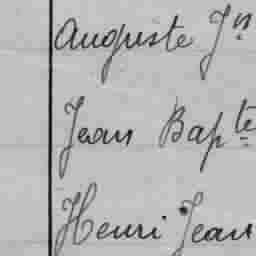 Auguste Jn
Jean Bapte
Henri Jean